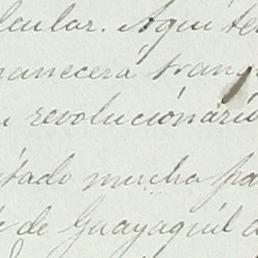 lcular. Aquí te
manecerá tranq
revolucionario
tado mucha pa
de Guayaquil